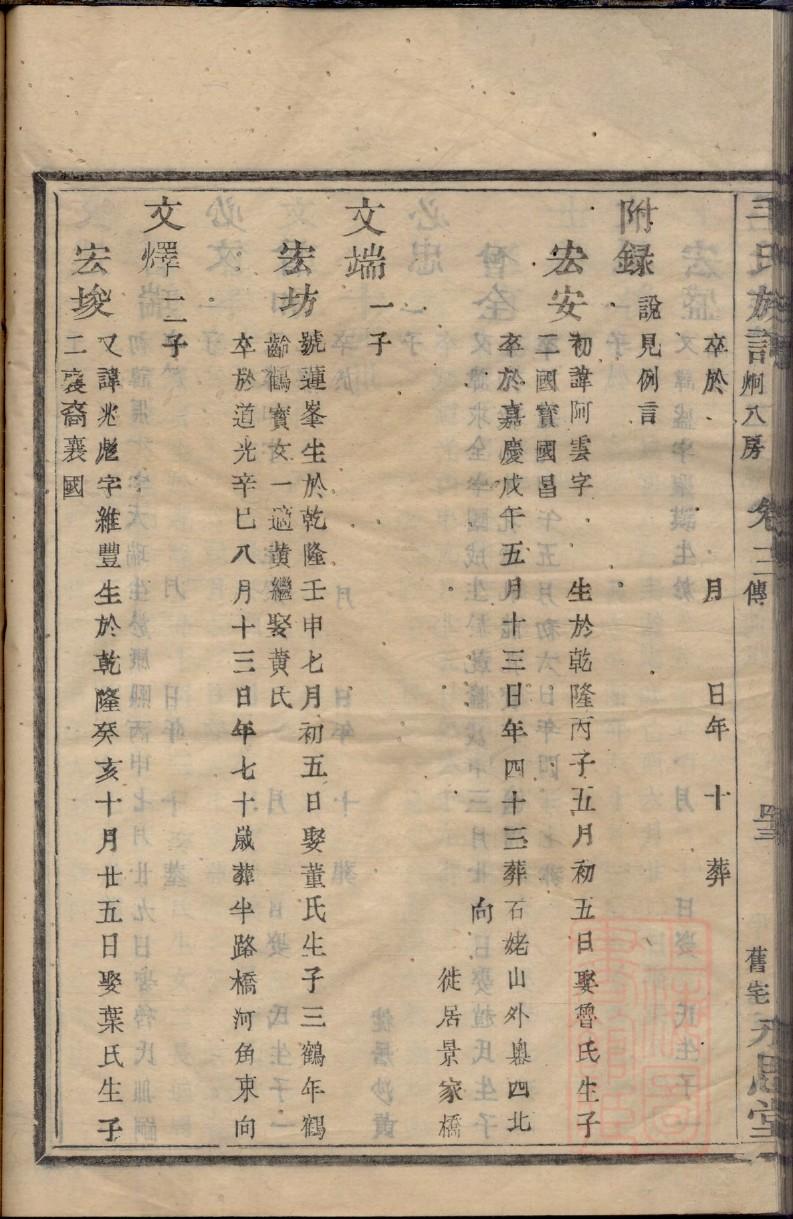 毛氏族譜 炯八房 卷 三傳 舊宅 永思堂
卒於 月 日年 十 葬
附録 說見例言
宏安 初諱阿雲字 生於乾隆丙子五月初五日娶魯氏生子
三國寶國昌
卒於嘉慶戊午五月十三日年四十三葬石姥山外㠗四北
向
徙居景家橋
文端 一子
宏坊 號蓮峯生於乾隆壬申七月初五日娶董氏生子三鶴年鶴
齡鶴寶女一適黄繼娶黄氏
卒於道光辛巳八月十三日年七十歲葬半路橋河角東向
文燡 二子
宏埈 又諱兆彪字維豐生於乾隆癸亥十月廿五日娶葉氏生子
二裦裔襄國